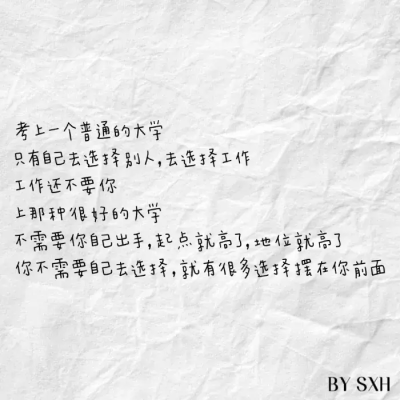 考上一个普通的大学
只有自己去选择别人,去选择工作
工作还不要你
上那种很好的大学
不需要你自己出手,起点就高了,地位就高了
你不需要自己去选择,就有很多选择摆在你前面
BY SXH